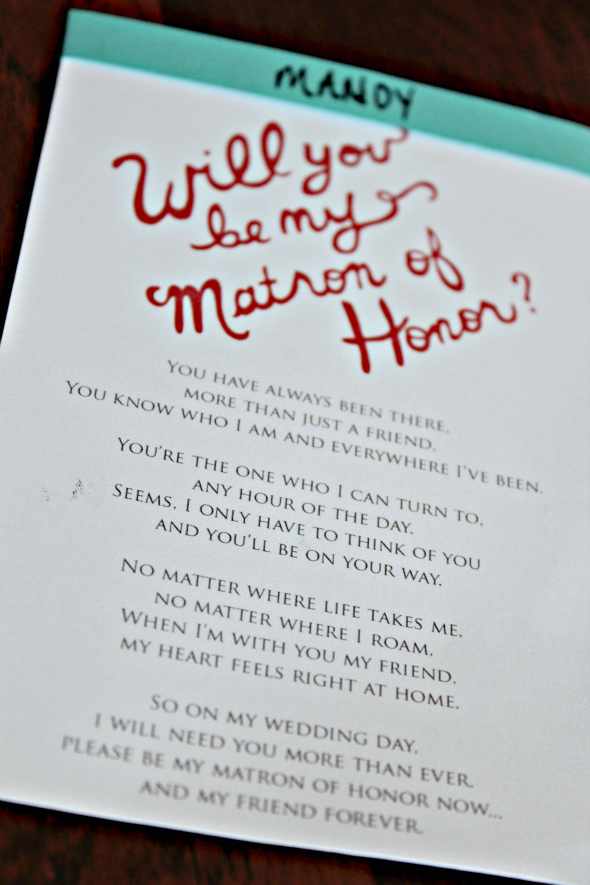 MANDY
Will you
be my
Matron of
Honor?
You have always been there,
more than just a friend.
You know who I am and everywhere I've been.
You're the one who I can turn to,
any hour of the day.
Seems, I only have to think of you
and you'll be on your way.
No matter where life takes me,
no matter where I roam,
When I'm with you my friend,
my heart feels right at home.
So on my wedding day,
I will need you more than ever.
Please be my matron of honor now...
and my friend forever.